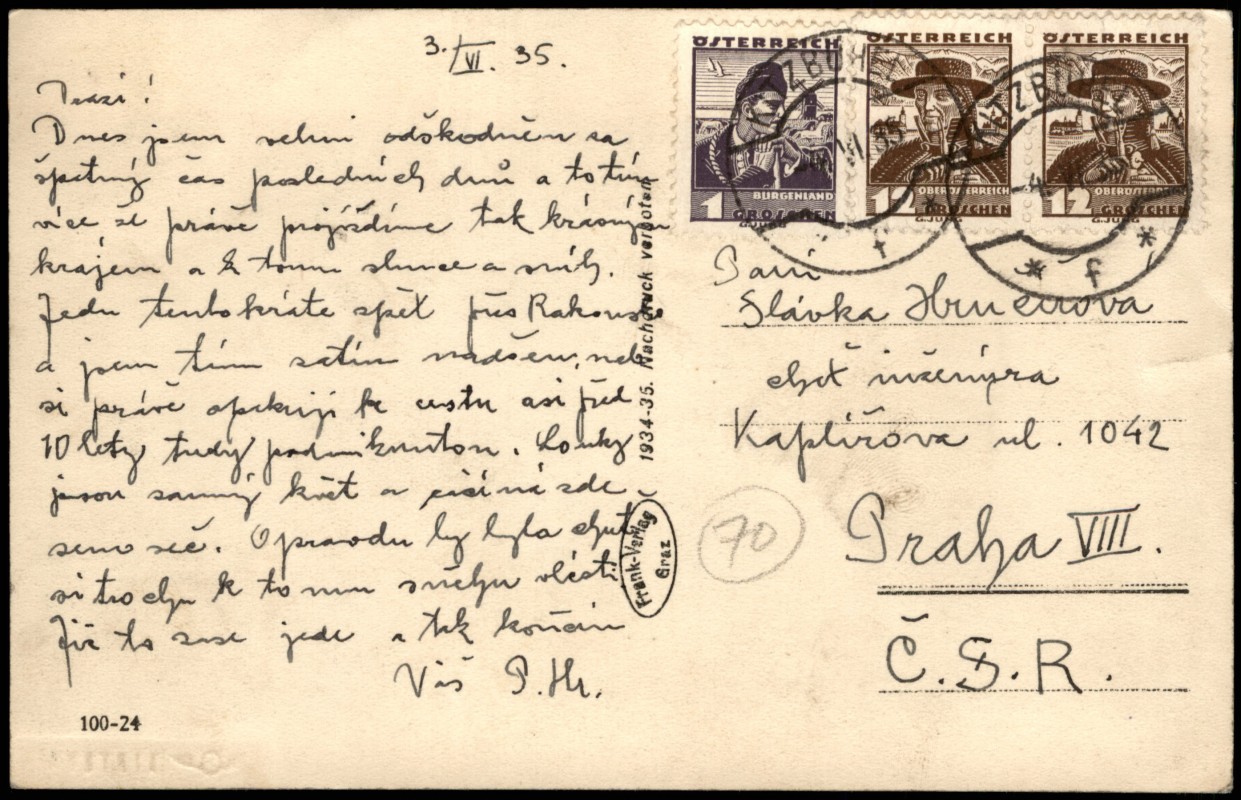 3./VI. 35.
Drazí!
Dnes jsem velmi odškodněn za
špatný čas posledních dnů a to tím
více že právě projíždíme tak krásným
krajem a k tomu slunce a sníh.
Jedu tentokráte zpět přes Rakousko
a jsem tím zatím nadšen, neb
si právě opakuji tu cestu asi před
10 lety tudy podniknutou. Louky
jsou samý květ a zde
seno seč. Opravdu by byla chuť
si trochu k tomu sněhu vlézti.
Již to zase jede a tak končím
Váš P. Hr.
100-24
1934-35. Nachdruck verboten
Frank-Verlag
Graz
ÖSTERREICH
BURGENLAND
1 GROSCHEN
G.JUNG
ÖSTERREICH
OBERÖSTERREICH
12 GROSCHEN
G.JUNG
ÖSTERREICH
OBERÖSTERREICH
12 GROSCHEN
G.JUNG
KITZBÜHEL
* f *
KITZBÜHEL
* f *
Paní
Slávka
choť inženýra
Kaplířova ul. 1042
Praha VIII.
Č.S.R.
70